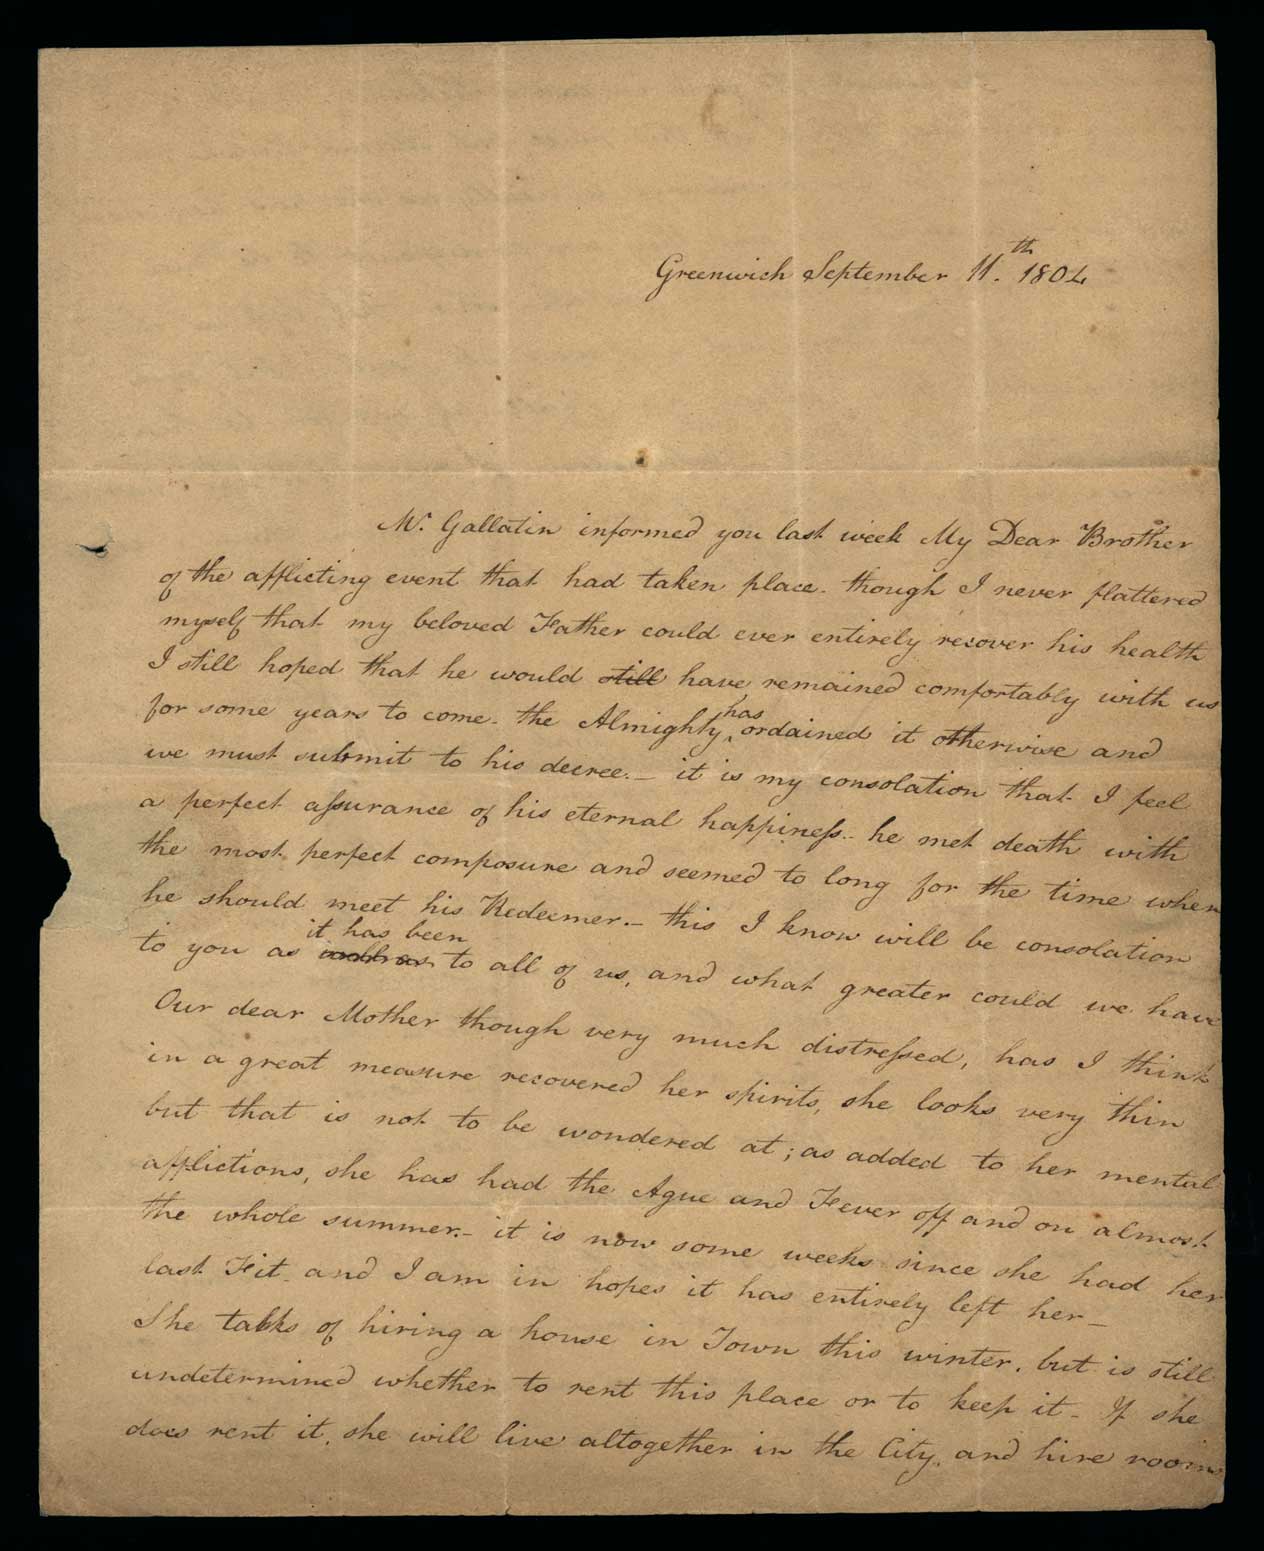 Greenwich September 11.th 1804
Mr. Gallatin informed you last week My Dear Brother
of the afflicting event that had taken place. though I never flattered
myself that my beloved Father could ever entirely recover his health
I still hoped that he would still have remained comfortably with us
for some years to come. the Almighty has ordained it otherwise and
we must submit to his decree.- it is my consolation that I feel
a perfect aſsurance of his eternal happineſs.- he met death with
the most perfect composure and seemed to long for the time when
he should meet his Redeemer.- this I know will be consolation
to you as it has been to all of us, and what greater could we have
Our dear Mother though very much distreſsed, has I think
in a great measure recovered her spirits, she looks very thin
but that is not to be wondered at; as added to her mental
afflictions, she has had the Ague and Fever off and on almost
the whole summer.- it is now some weeks since she had her
last Fit. and I am in hopes it has entirely left her-
She talks of hiring a house in Town this winter. but is still
undetermined whether to rent this place or to keep it- If she
does rent it, she will live altogether in the City, and hire rooms